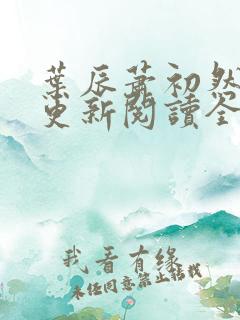 葉辰蕭初然
更新閱讀全
我看有緣
未經同意禁止轉載